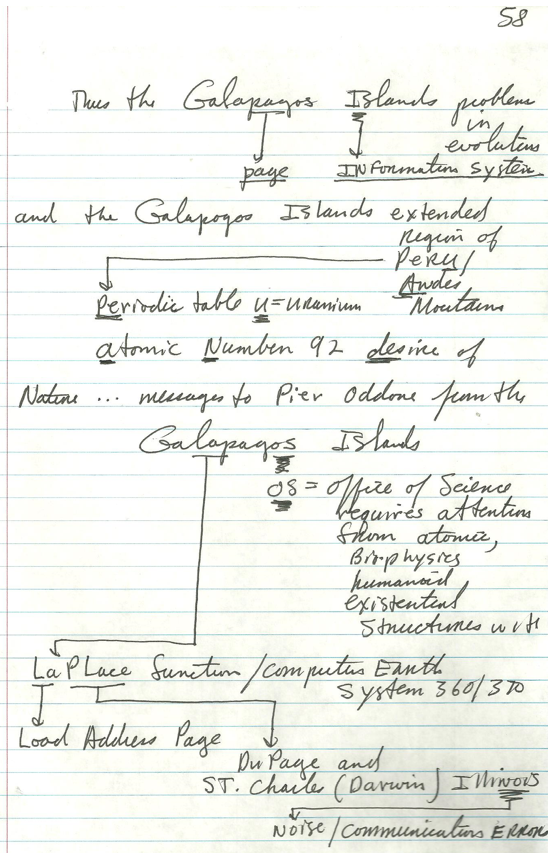 58
Thus the Galapagos Islands problem
in
evolution
page INFormation System
and the Galapogos Islands extended
region of
PERU/
Andes
Mountains
Periodic table U=Uranium
atomic Number 92 desire of
Nature ... messages to Pier Oddone from the
Galapagos Islands
OS = Office of Science
requires attention
from atomic,
Bio-physics
humanoid
existential
Structures with
LaPLace function/computer Earth
System 360/370
Load Address Page
DuPage and
ST. Charles (Darwin) Illinois
Noise/Communication ERROR